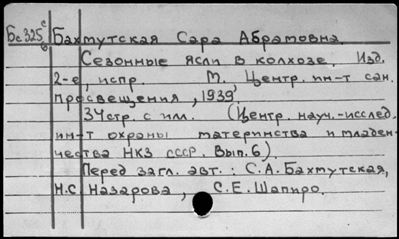 Бс325 с/б Бахтутская Сара Абрамовна.
Сезонные ясли в колхозе. Изд.
2-е, испр. М. Центр. ин-т сан.
просвещения, 1939
34 стр. с илл. (Центр. науч.-исслед.
ин-т охраны материнства и младен-
чества НКЗ СССР. Вып. 6).
Перед загл. авт.: С.А. Бахмутская,
Н.С. Назарова, С.Е. Шапиро.